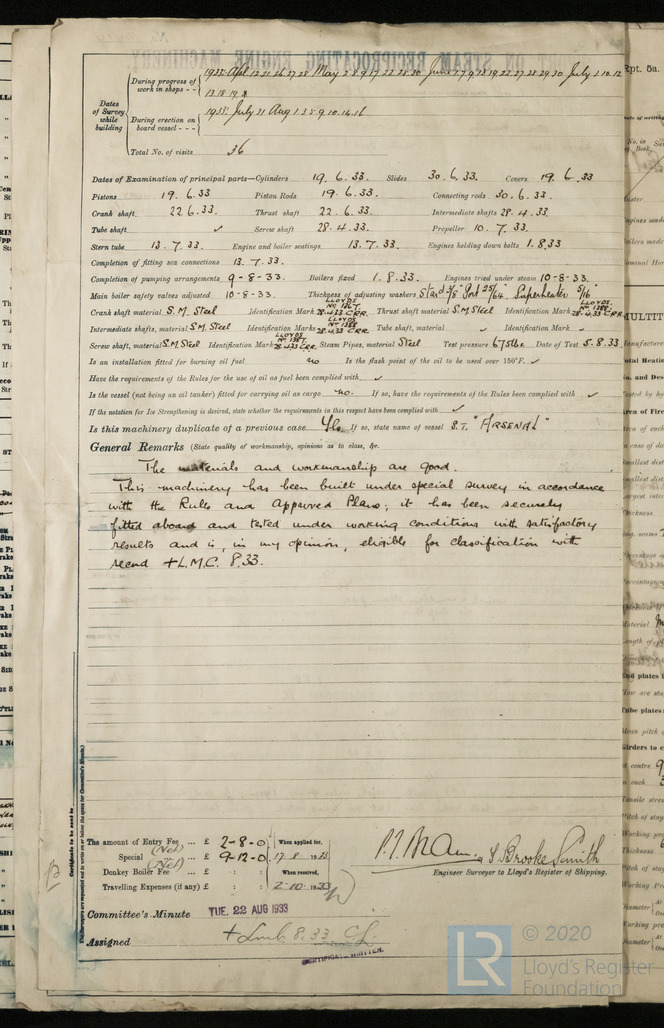 ON STEAM RECIPROCATING ENGINE MACHINERY
Dates of Survey while building
During progress of work in shops - - 1933: April 12 21 26 27 28 May 2 8 9 17 22 25 30 June 1 7 9 13 19 22 27 28 29 30 July 3 10 12
13 18 19
During erection on board vessel - - - 1933: July 31 Aug 1 3 5 9 10 14 16
Total No. of visits 36
Dates of Examination of principal parts—Cylinders 19.6.33. Slides 30.6.33. Covers 19.6.33
Pistons 19.6.33 Piston Rods 19.6.33. Connecting rods 30.6.33.
Crank shaft 22.6.33. Thrust shaft 22.6.33. Intermediate shafts 28.4.33
Tube shaft ✓ Screw shaft 28.4.33. Propeller 10.7.33.
Stern tube 13.7.33. Engine and boiler seatings 13.7.33. Engines holding down bolts 1.8.33
Completion of fitting sea connections 13.7.33.
Completion of pumping arrangements 9-8-33. Boilers fixed 1.8.33. Engines tried under steam 10-8-33.
Main boiler safety valves adjusted 10-8-33. Thickness of adjusting washers Star'd 3/8" Port 25/64" Superheater 5/16"
Crank shaft material S.M. Steel Identification Mark LLOYDS 28.4.33 C.R.R. Thrust shaft material S.M. Steel Identification Mark LLOYDS 28.4.33 C.R.R.
Intermediate shafts, material S.M. Steel Identification Marks LLOYDS 28.4.33 C.R.R. Tube shaft, material ✓ Identification Mark ✓
Screw shaft, material S.M. Steel Identification Mark LLOYDS 28.4.33 C.R.R. Steam Pipes, material Steel Test pressure 675 lbs. Date of Test 5.8.33.
Is an installation fitted for burning oil fuel no Is the flash point of the oil to be used over 150°F. ✓
Have the requirements of the Rules for the use of oil as fuel been complied with ✓
Is the vessel (not being an oil tanker) fitted for carrying oil as cargo no. If so, have the requirements of the Rules been complied with ✓
If the notation for Ice Strengthening is desired, state whether the requirements in this respect have been complied with ✓
Is this machinery duplicate of a previous case Yes. If so, state name of vessel S.T. "ARSENAL"
General Remarks (State quality of workmanship, opinions as to class, &c.
The materials and workmanship are good.
This machinery has been built under special survey in accordance
with the Rules and Approved Plans; it has been securely
fitted aboard and tested under working conditions with satisfactory
results and is, in my opinion, eligible for classification with
record +L.M.C. 8.33.
The amount of Entry Fee ... £ 2-8-0 When applied for,
Special ... £ 9-12-0 17.8.1933
Donkey Boiler Fee ... £ : : When received,
Travelling Expenses (if any) £ : : 2-10-1933
S. Brooke Smith
Engineer Surveyor to Lloyd's Register of Shipping.
Committee's Minute TUE. 22 AUG 1933
Assigned + Lmc 8.33
CERTIFICATE WRITTEN.
LR
© 2020
Lloyd's Register
Foundation
Rpt. 5a.